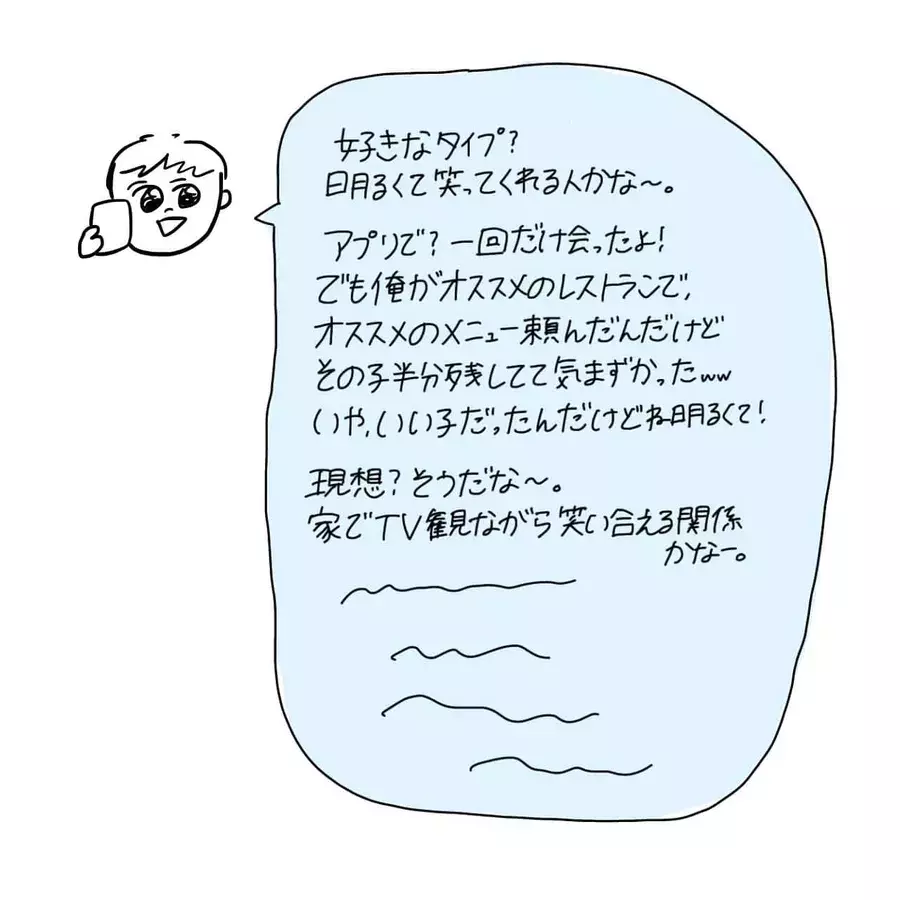 好きなタイプ?
明るくて笑ってくれる人かな〜。
アプリで?一回だけ会ったよ!
でも俺がオススメのレストランで、
オススメのメニュー頼んだんだけど
その子半分残してて気まずかったww
いや、いい子だったんだけどね明るくて!
現想?そうだな〜。
家でTV観ながら笑い合える関係
かなー。